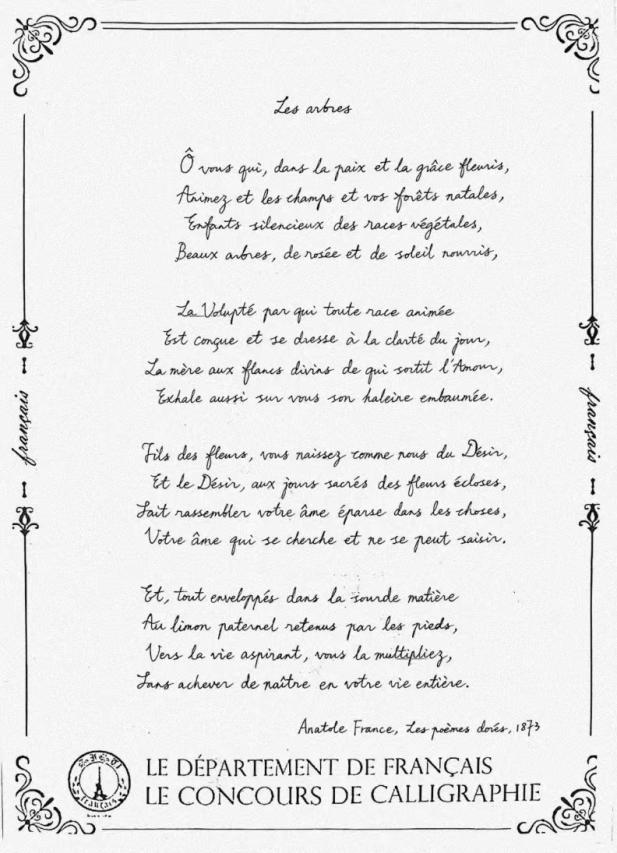 Les arbres
Ô vous qui, dans la paix et la grâce fleuris,
Animez et les champs et vos forêts natales,
Enfants silencieux des races végétales,
Beaux arbres, de rosée et de soleil nourris,
La Volupté par qui toute race animée
Est conçue et se dresse à la clarté du jour,
La mère aux flancs divins de qui sortit l'Amour,
Exhale aussi sur vous son haleine embaumée.
Fils des fleurs, vous naissez comme nous du Désir,
Et le Désir, aux jours sacrés des fleurs écloses,
Sait rassembler votre âme éparse dans les choses,
Votre âme qui se cherche et ne se peut saisir.
Et, tout enveloppés dans la sourde matière
Au limon paternel retenus par les pieds,
Vers la vie aspirant, vous la multipliez,
Sans achever de naître en votre vie entière.
Anatole France, Les poèmes dorés, 1873
français
français
français
LE DÉPARTEMENT DE FRANÇAIS
LE CONCOURS DE CALLIGRAPHIE